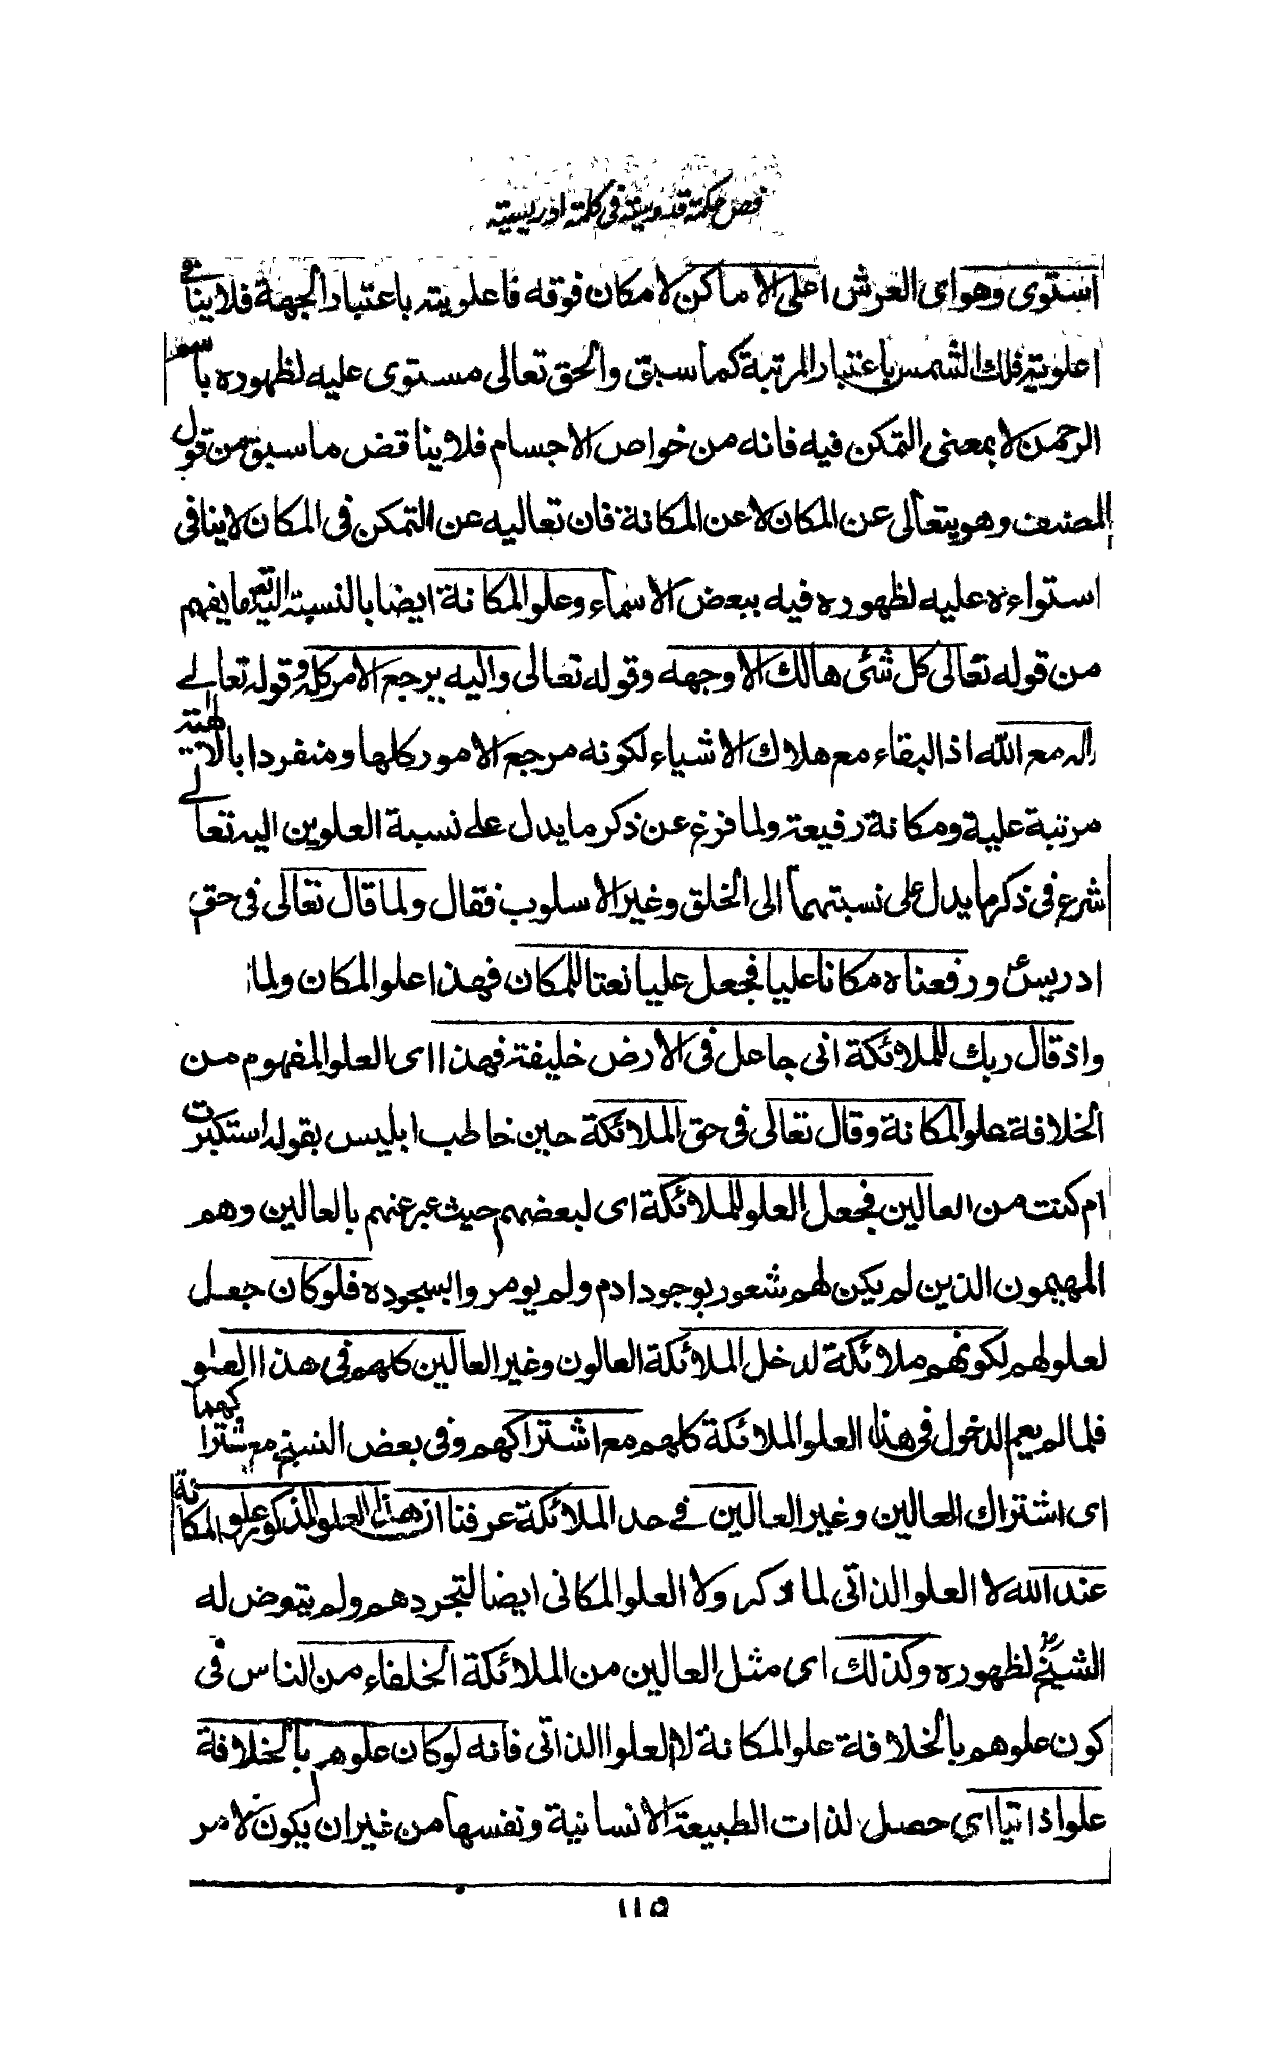 فص حكمة قدوسية في كلمة ادريسية
استوى وهو اى العرش اعلى الاماكن لامكان فوقه فاعلويته باعتبار الجهة فلا ينافى
اعلوية فلك الشمس باعتبار المرتبة كما سبق والحق تعالى مستوى عليه لظهوره باسم
الرحمن لا بمعنى التمكن فيه فانه من خواص الاجسام فلا يناقض ما سبق من قول
المصنف وهو يتعالى عن المكان لا عن المكانة فان تعاليه عن التمكن فى المكان لا ينافى
استواءه عليه لظهوره فيه ببعض الاسماء وعلو المكانة ايضا بالنسبة اليه تع ما يفهم
من قوله تعالى كل شئى هالك الا وجهه وقوله تعالى واليه يرجع الامر كله وقوله تعالے
اله مع الله اذ البقاء مع هلاك الاشياء لكونه مرجع الامور كلها ومنفردا بالالهية
مرتبة علية ومكانة رفيعة ولما فرغ عن ذكر ما يدل علے نسبة العلوين اليه تعالے
شرع فى ذكر ما يدل على نسبتهما الى الخلق وغير الاسلوب فقال ولما قال تعالى فى حق
ادريس ورفعناه مكانا عليا فجعل عليا نعتا للمكان فهذا علو المكان ولما
واذ قال ربك للملائكة انى جاعل فى الارض خليفة فهذا اى العلو المفهوم من
الخلافة علو المكانة وقال تعالى فى حق الملائكة حين خاطب ابليس بقوله استكبرت
ام كنت من العالين فجعل العلو للملائكة اى لبعضهم حيث عبر عنهم بالعالين وهم
المهيمون الذين لم يكن لهم شعور بوجود ادم ولم يومروا بسجوده فلو كان جعل
لعلو لهم لكونهم ملائكة لدخل الملائكة العالون وغير العالين كلهم فى هذا العلو
فلما لم يعم الدخول فى هذا العلو الملائكة كلهم مع اشتراكهم وفى بعض النسخ مع اشتراكهما
اى اشتراك العالين وغير العالين فے حد الملائكة عرفنا ان هذا العلو المذكور علو المكانة
عند الله لا العلو الذاتى لما ذكر ولا العلو المكانى ايضا لتجردهم ولم يتعرض له
الشيخ لظهوره وكذلك اى مثل العالين من الملائكة الخلفاء من الناس فى
كون علوهم بالخلافة علو المكانة لا العلوا الذاتى فانه لو كان علوهم بالخلافة
علوا ذاتيا اى حصل لذات الطبيعة الانسانية ونفسها من غير ان يكون لامر
١١٥